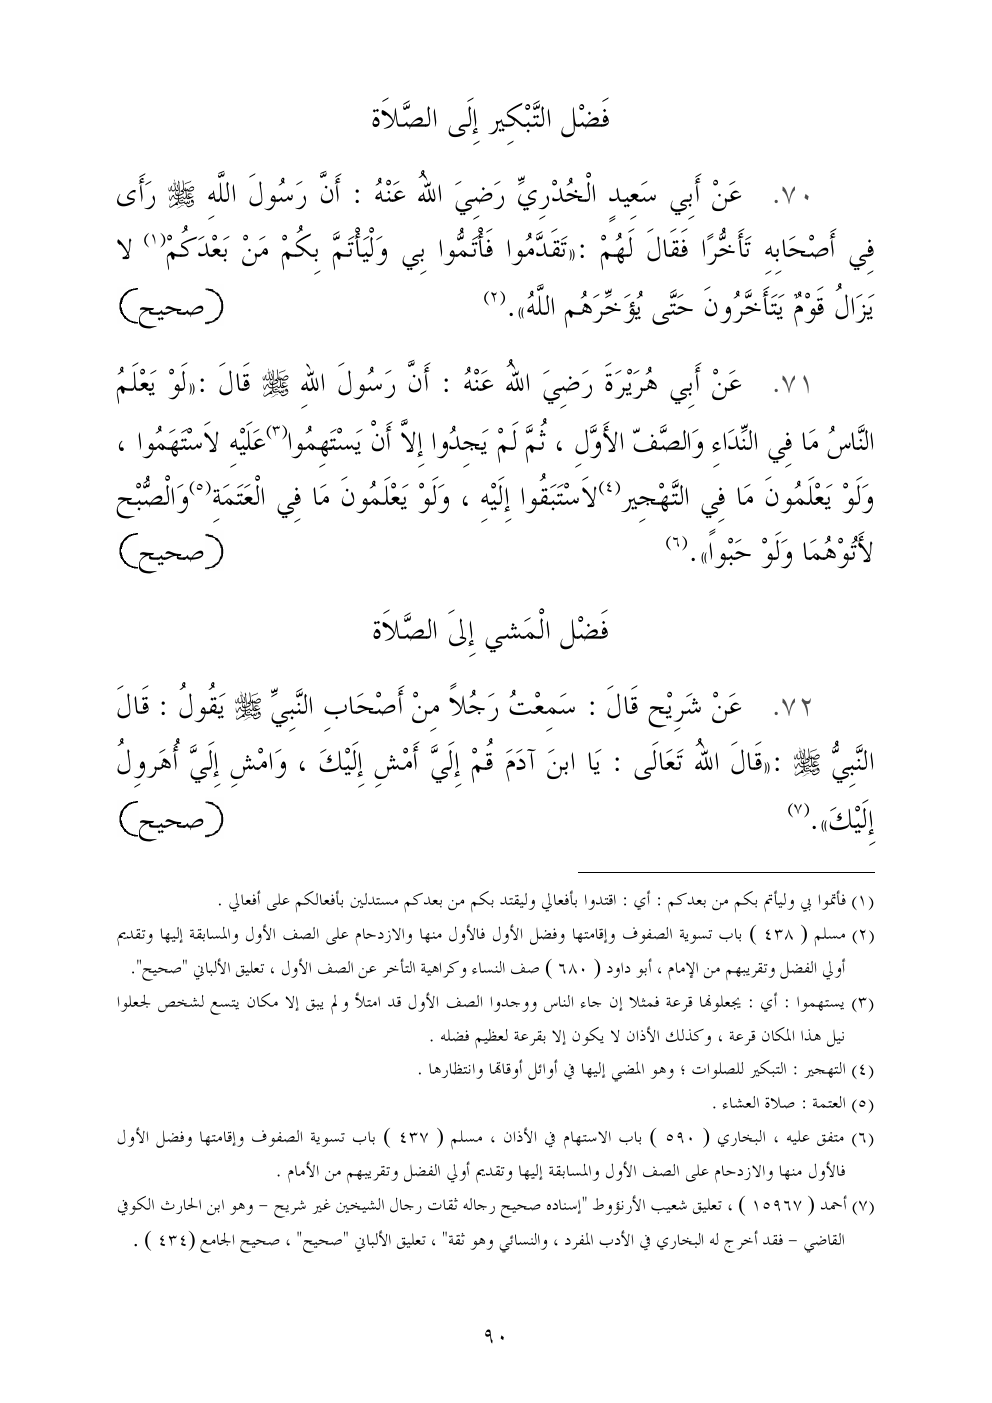 فَضْل التَّبْكِير إِلَى الصَّلاَة
٧٠. عَنْ أَبِي سَعِيدٍ الْخُدْرِيِّ رَضِيَ اللهُ عَنْهُ : أَنَّ رَسُولَ اللَّهِ ﷺ رَأَى
فِي أَصْحَابِهِ تَأَخُّرًا فَقَالَ لَهُمْ :«تَقَدَّمُوا فَأْتَمُّوا بِي وَلْيَأْتَمَّ بِكُمْ مَنْ بَعْدَكُمْ(١) لا
يَزَالُ قَوْمٌ يَتَأَخَّرُونَ حَتَّى يُؤَخِّرَهُم اللَّهُ».(٢) (صحيح)
٧١. عَنْ أَبِي هُرَيْرَةَ رَضِيَ اللهُ عَنْهُ : أَنَّ رَسُولَ اللهِ ﷺ قَالَ :«لَوْ يَعْلَمُ
النَّاسُ مَا فِي النِّدَاءِ وَالصَّفّ الأَوَّلِ ، ثُمَّ لَمْ يَجِدُوا إِلاَّ أَنْ يَسْتَهِمُوا(٣)عَلَيْهِ لاَسْتَهَمُوا ،
وَلَوْ يَعْلَمُونَ مَا فِي التَّهْجِير(٤)لاَسْتَبَقُوا إِلَيْهِ ، وَلَوْ يَعْلَمُونَ مَا فِي الْعَتَمَةِ(٥)وَالْصُّبْح
لأَتَوْهُمَا وَلَوْ حَبْواً».(٦) (صحيح)
فَضْل الْمَشي إِلىَ الصَّلاَة
٧٢. عَنْ شَرِيْح قَالَ : سَمِعْتُ رَجُلاً مِنْ أَصْحَابِ النَّبِيِّ ﷺ يَقُولُ : قَالَ
النَّبِيُّ ﷺ :«قَالَ اللهُ تَعَالَى : يَا ابنَ آدَمَ قُمْ إِلَيَّ أَمْشِ إِلَيْكَ ، وَامْشِ إِلَيَّ أُهَرولُ
إِلَيْكَ».(٧) (صحيح)
(١) فأتموا بي وليأتم بكم من بعدكم : أي : اقتدوا بأفعالي وليقتد بكم من بعدكم مستدلين بأفعالكم على أفعالي .
(٢) مسلم ( ٤٣٨ ) باب تسوية الصفوف وإقامتها وفضل الأول فالأول منها والازدحام على الصف الأول والمسابقة إليها وتقديم
أولي الفضل وتقريبهم من الإمام ، أبو داود ( ٦٨٠ ) صف النساء وكراهية التأخر عن الصف الأول ، تعليق الألباني "صحيح".
(٣) يستهموا : أي : يجعلوها قرعة فمثلا إن جاء الناس ووجدوا الصف الأول قد امتلأ ولم يبق إلا مكان يتسع لشخص لجعلوا
نيل هذا المكان قرعة ، وكذلك الأذان لا يكون إلا بقرعة لعظيم فضله .
(٤) التهجير : التبكير للصلوات ؛ وهو المضي إليها في أوائل أوقاتها وانتظارها .
(٥) العتمة : صلاة العشاء .
(٦) متفق عليه ، البخاري ( ٥٩٠ ) باب الاستهام في الأذان ، مسلم ( ٤٣٧ ) باب تسوية الصفوف وإقامتها وفضل الأول
فالأول منها والازدحام على الصف الأول والمسابقة إليها وتقديم أولي الفضل وتقريبهم من الأمام .
(٧) أحمد ( ١٥٩٦٧ ) ، تعليق شعيب الأرنؤوط "إسناده صحيح رجاله ثقات رجال الشيخين غير شريح – وهو ابن الحارث الكوفي
القاضي – فقد أخرج له البخاري في الأدب المفرد ، والنسائي وهو ثقة" ، تعليق الألباني "صحيح" ، صحيح الجامع (٤٣٤ ) .
٩٠